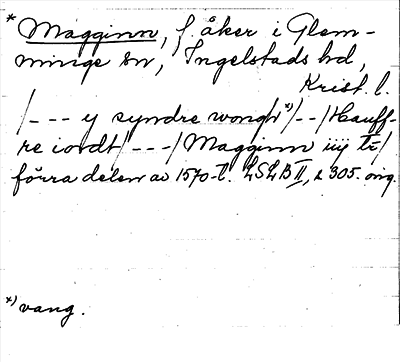 * Magginn, f. åker i Glem-
minge sn, Ingelstads hd,
Krist. l.
/--- y syndre wongh *)/--/Hauff-
re iordt/---/Magginn iiij tr/
förra delen av 1570-t. LSLB II, s 305. orig.
*) vang.